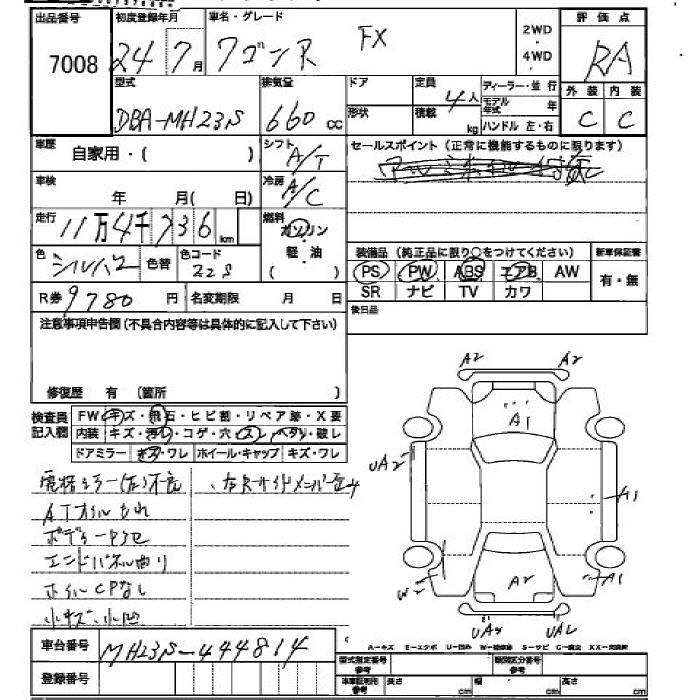 出品番号 7008
初度登録年月 24年7月
車名・グレード ワゴンR FX
2WD・4WD
評価点 RA
型式 DBA-MH23S
排気量 660 cc
ドア
形状
定員 4人
積載 kg
ディーラー・並行
モデル年式 年
ハンドル 左・右
外装 C
内装 C
車歴 自家用・( )
シフト A/T
セールスポイント(正常に機能するものに限ります)
車検 年 月( 日)
冷房 A/C
走行 11万4千736km
燃料 ガソリン
軽・油
( )
色 シルバー
色替
色コード Z2S
装備品 (純正品に限り○をつけてください)
新車保証書
PS PW ABS エアB AW
有・無
SR ナビ TV カワ
R券 9780円
名変期限 月 日
後日品
注意事項申告欄(不具合内容等は具体的に記入して下さい)
修復歴 有 (箇所 )
検査員記入欄
FW キズ・飛石・ヒビ割・リペア跡・X要
内装 キズ・汚レ・コゲ・穴・スレ・ヘタリ・破レ
ドアミラー キズ・ワレ ホイール・キャップ キズ・ワレ
ATオイルもれ
ホイルCPなし
小キズ・小凹
A2 A2
A1
UA2
A1
W2
A2
A1
車台番号 MH23S-444814
A-キズ E-エクボ U-凹み W-補修跡 S-サビ C-腐食 XX-交換済
登録番号
型式指定番号
参考
類別区分番号
参考
車庫証明用
参考
長さ cm
幅 cm
高さ cm